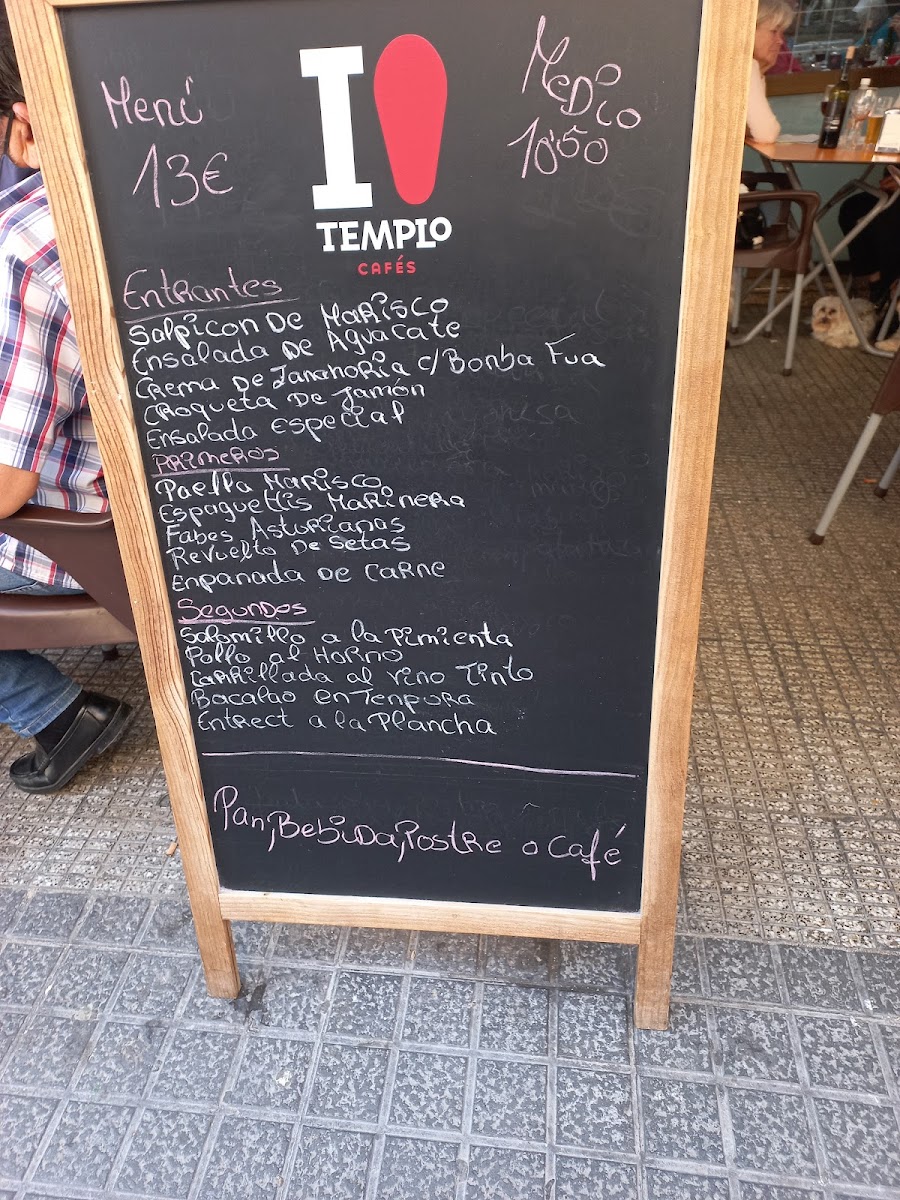 Menú
13€
I
TEMPLO
CAFÉS
Medio
10'50
Entrantes
Salpicon De Marisco
Ensalada De Aguacate
Crema De Zanahoria c/Bonba Fua
Croqueta De Jamón
Ensalada Especial
Primeros
Paella Marisco
Espaguettis Marinera
Fabes Asturianas
Revuelto De Setas
Enpanada De Carne
Segundos
Solomillo a la Pimienta
Pollo al Horno
Carrillada al vino Tinto
Bacalao en Tenpura
Entrect a la Plancha
Pan, Bebida, Postre o Café